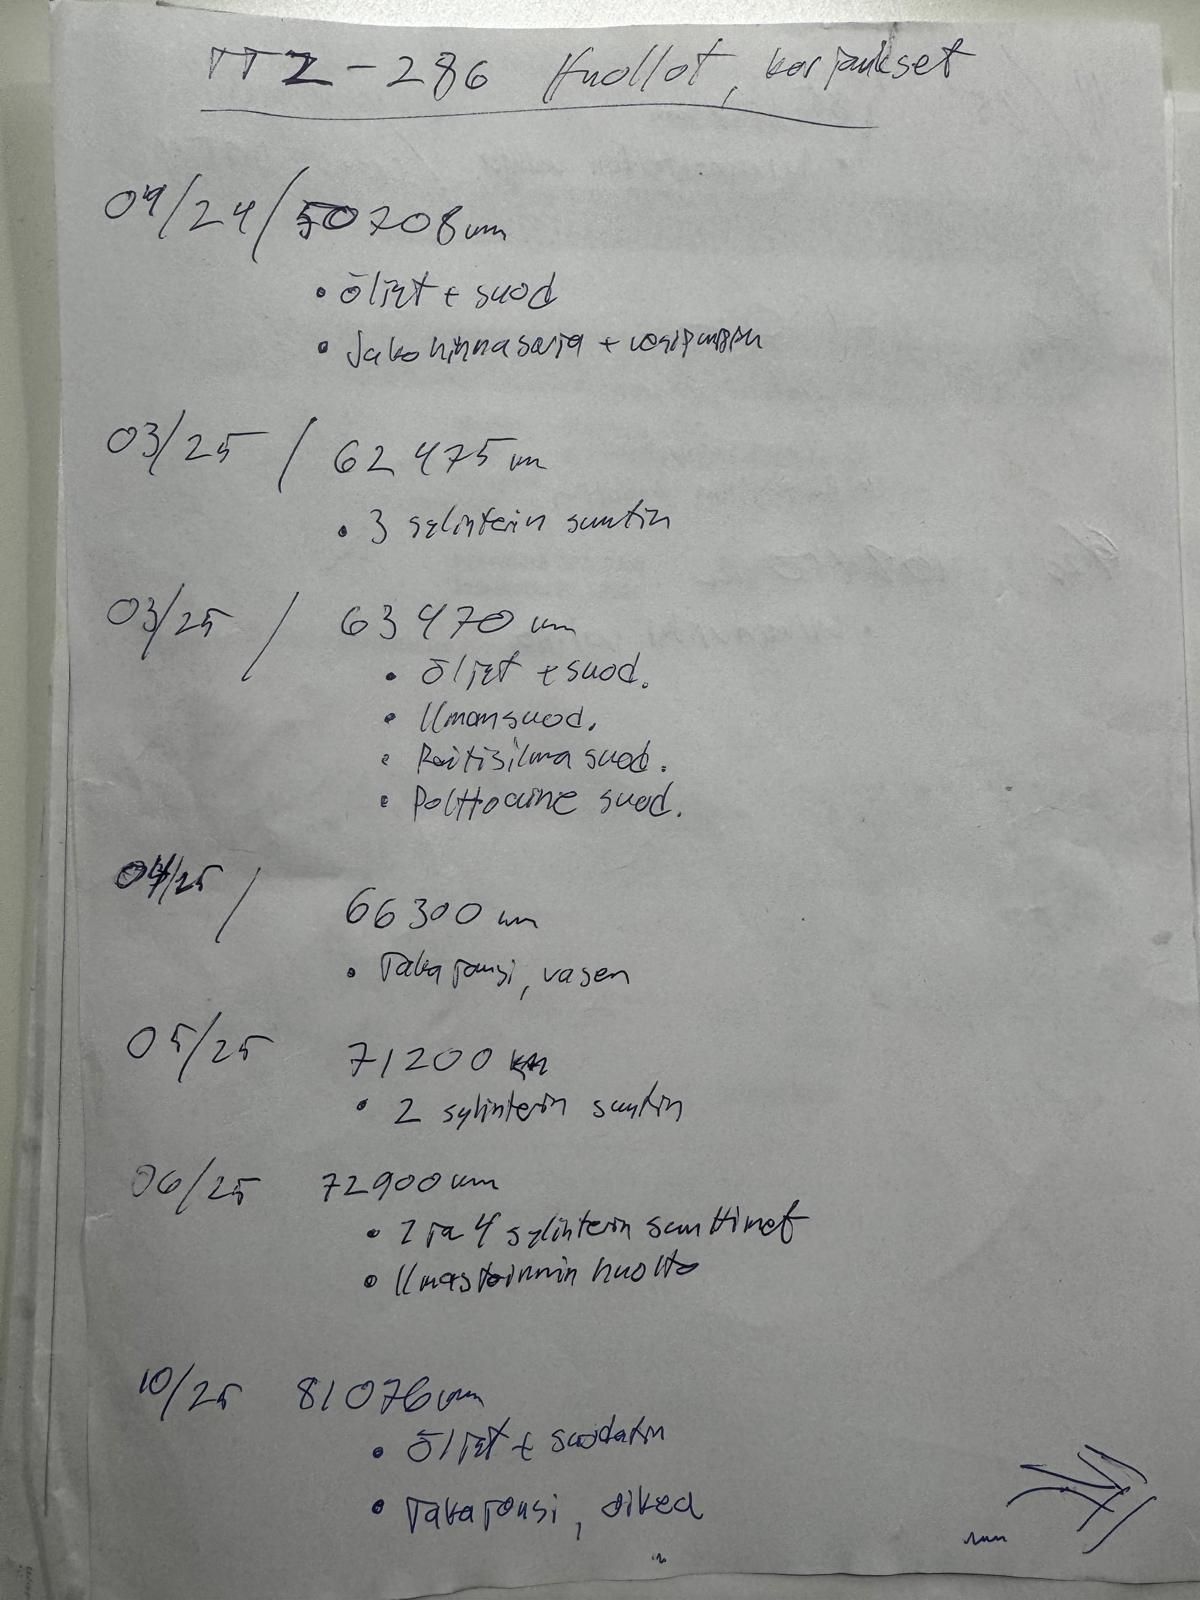 TTZ-286 Huollot, korjaukset
04/24/50708km
• öljyt + suod
• Jakohihnasarja + vesipumppu
03/25 / 62475 km
• 3 sylinterin suutin
03/25 / 63470 km
• öljyt + suod.
• Ilmansuod.
• Raitisilma suod.
• Polttoaine suod.
04/25 / 66300 km
• Takajousi, vasen
05/25 71200 km
• 2 sylinterin suutin
06/25 72900 km
• 1 ja 4 sylinterin suuttimet
• Ilmastoinnin huolto
10/25 81076 km
• öljyt + suodatin
• Takajousi, oikea